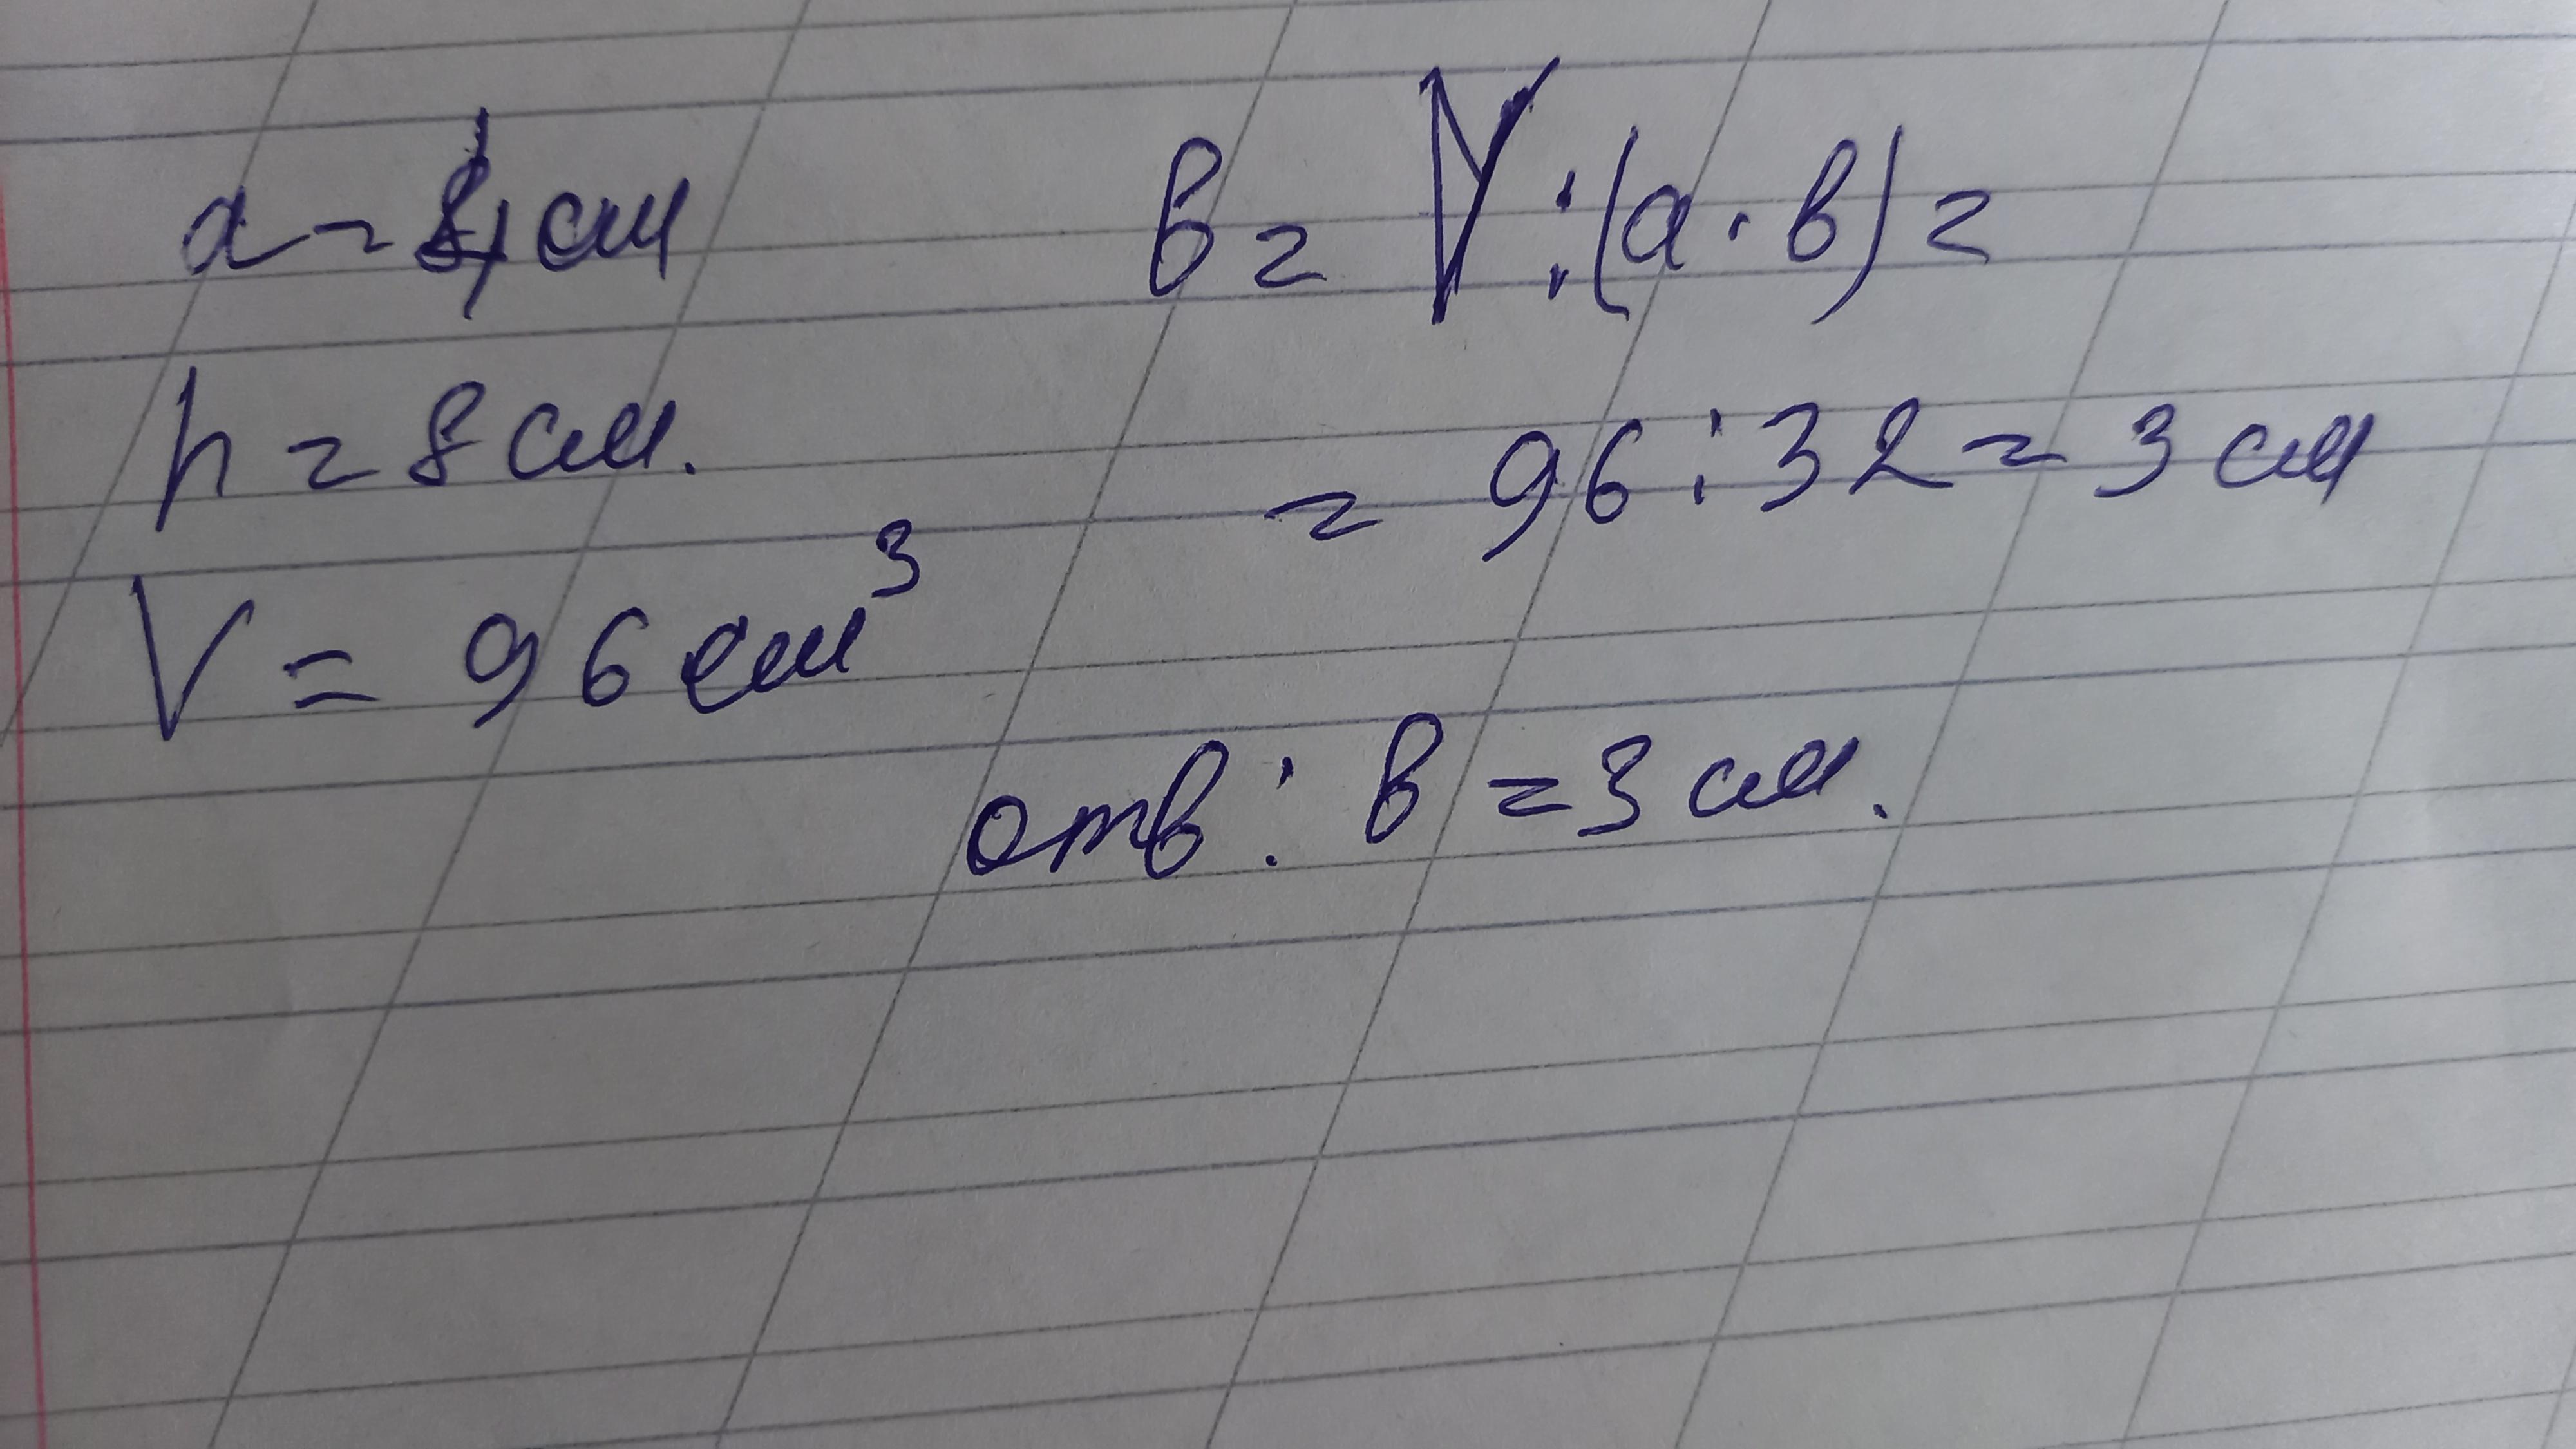 a = 4 см
h = 8 см.
V = 96 см³
в = V : (а · в) =
= 96 : 32 = 3 см
отв : в = 3 см.